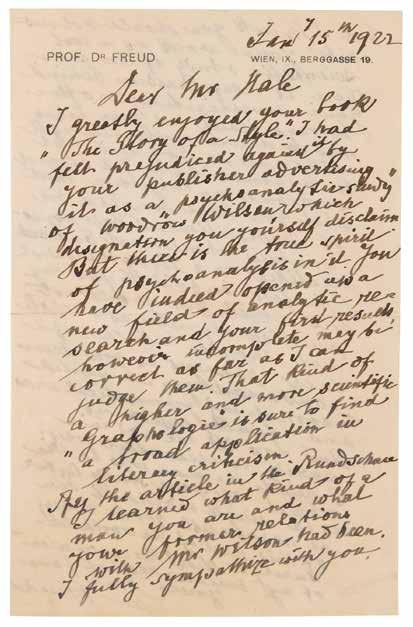 Jan^y 15^th 1922
PROF. DR FREUD
WIEN, IX., BERGGASSE 19.
Dear Mr Hale
I greatly enjoyed your book
"The Story of a Style". I had
felt prejudiced against it by
your publisher advertising
it as a "psychoanalytic study"
of Woodrow Wilson which
designation you yourself disclaim
But there is the true spirit
of psychoanalysis in it. You
have indeed opened up a
new field of analytic re-
search and your first results,
however incomplete may be
correct as far as I can
judge them. That kind of
a higher and more scientific
"Graphologie" is sure to find
a broad application in
literary criticism.
By the article in the Rundschau
I learned what kind of a
man you are and what
your former relations
with Mr Wilson had been.
I fully sympathize with you.